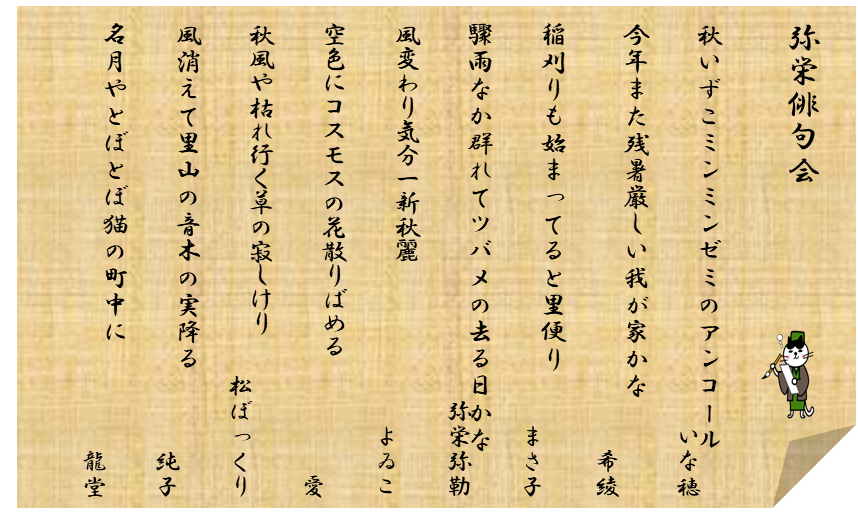 弥栄俳句会
秋いずこミンミンゼミのアンコール
いな穂
今年また残暑厳しい我が家かな
希綾
稲刈りも始まってると里便り
まさ子
驟雨なか群れてツバメの去る日かな
弥栄弥勒
風変わり気分一新秋麗
よゐこ
空色にコスモスの花散りばめる
愛
秋風や枯れ行く草の寂しけり
松ぼっくり
風消えて里山の音木の実降る
純子
名月やとぼとぼ猫の町中に
龍堂